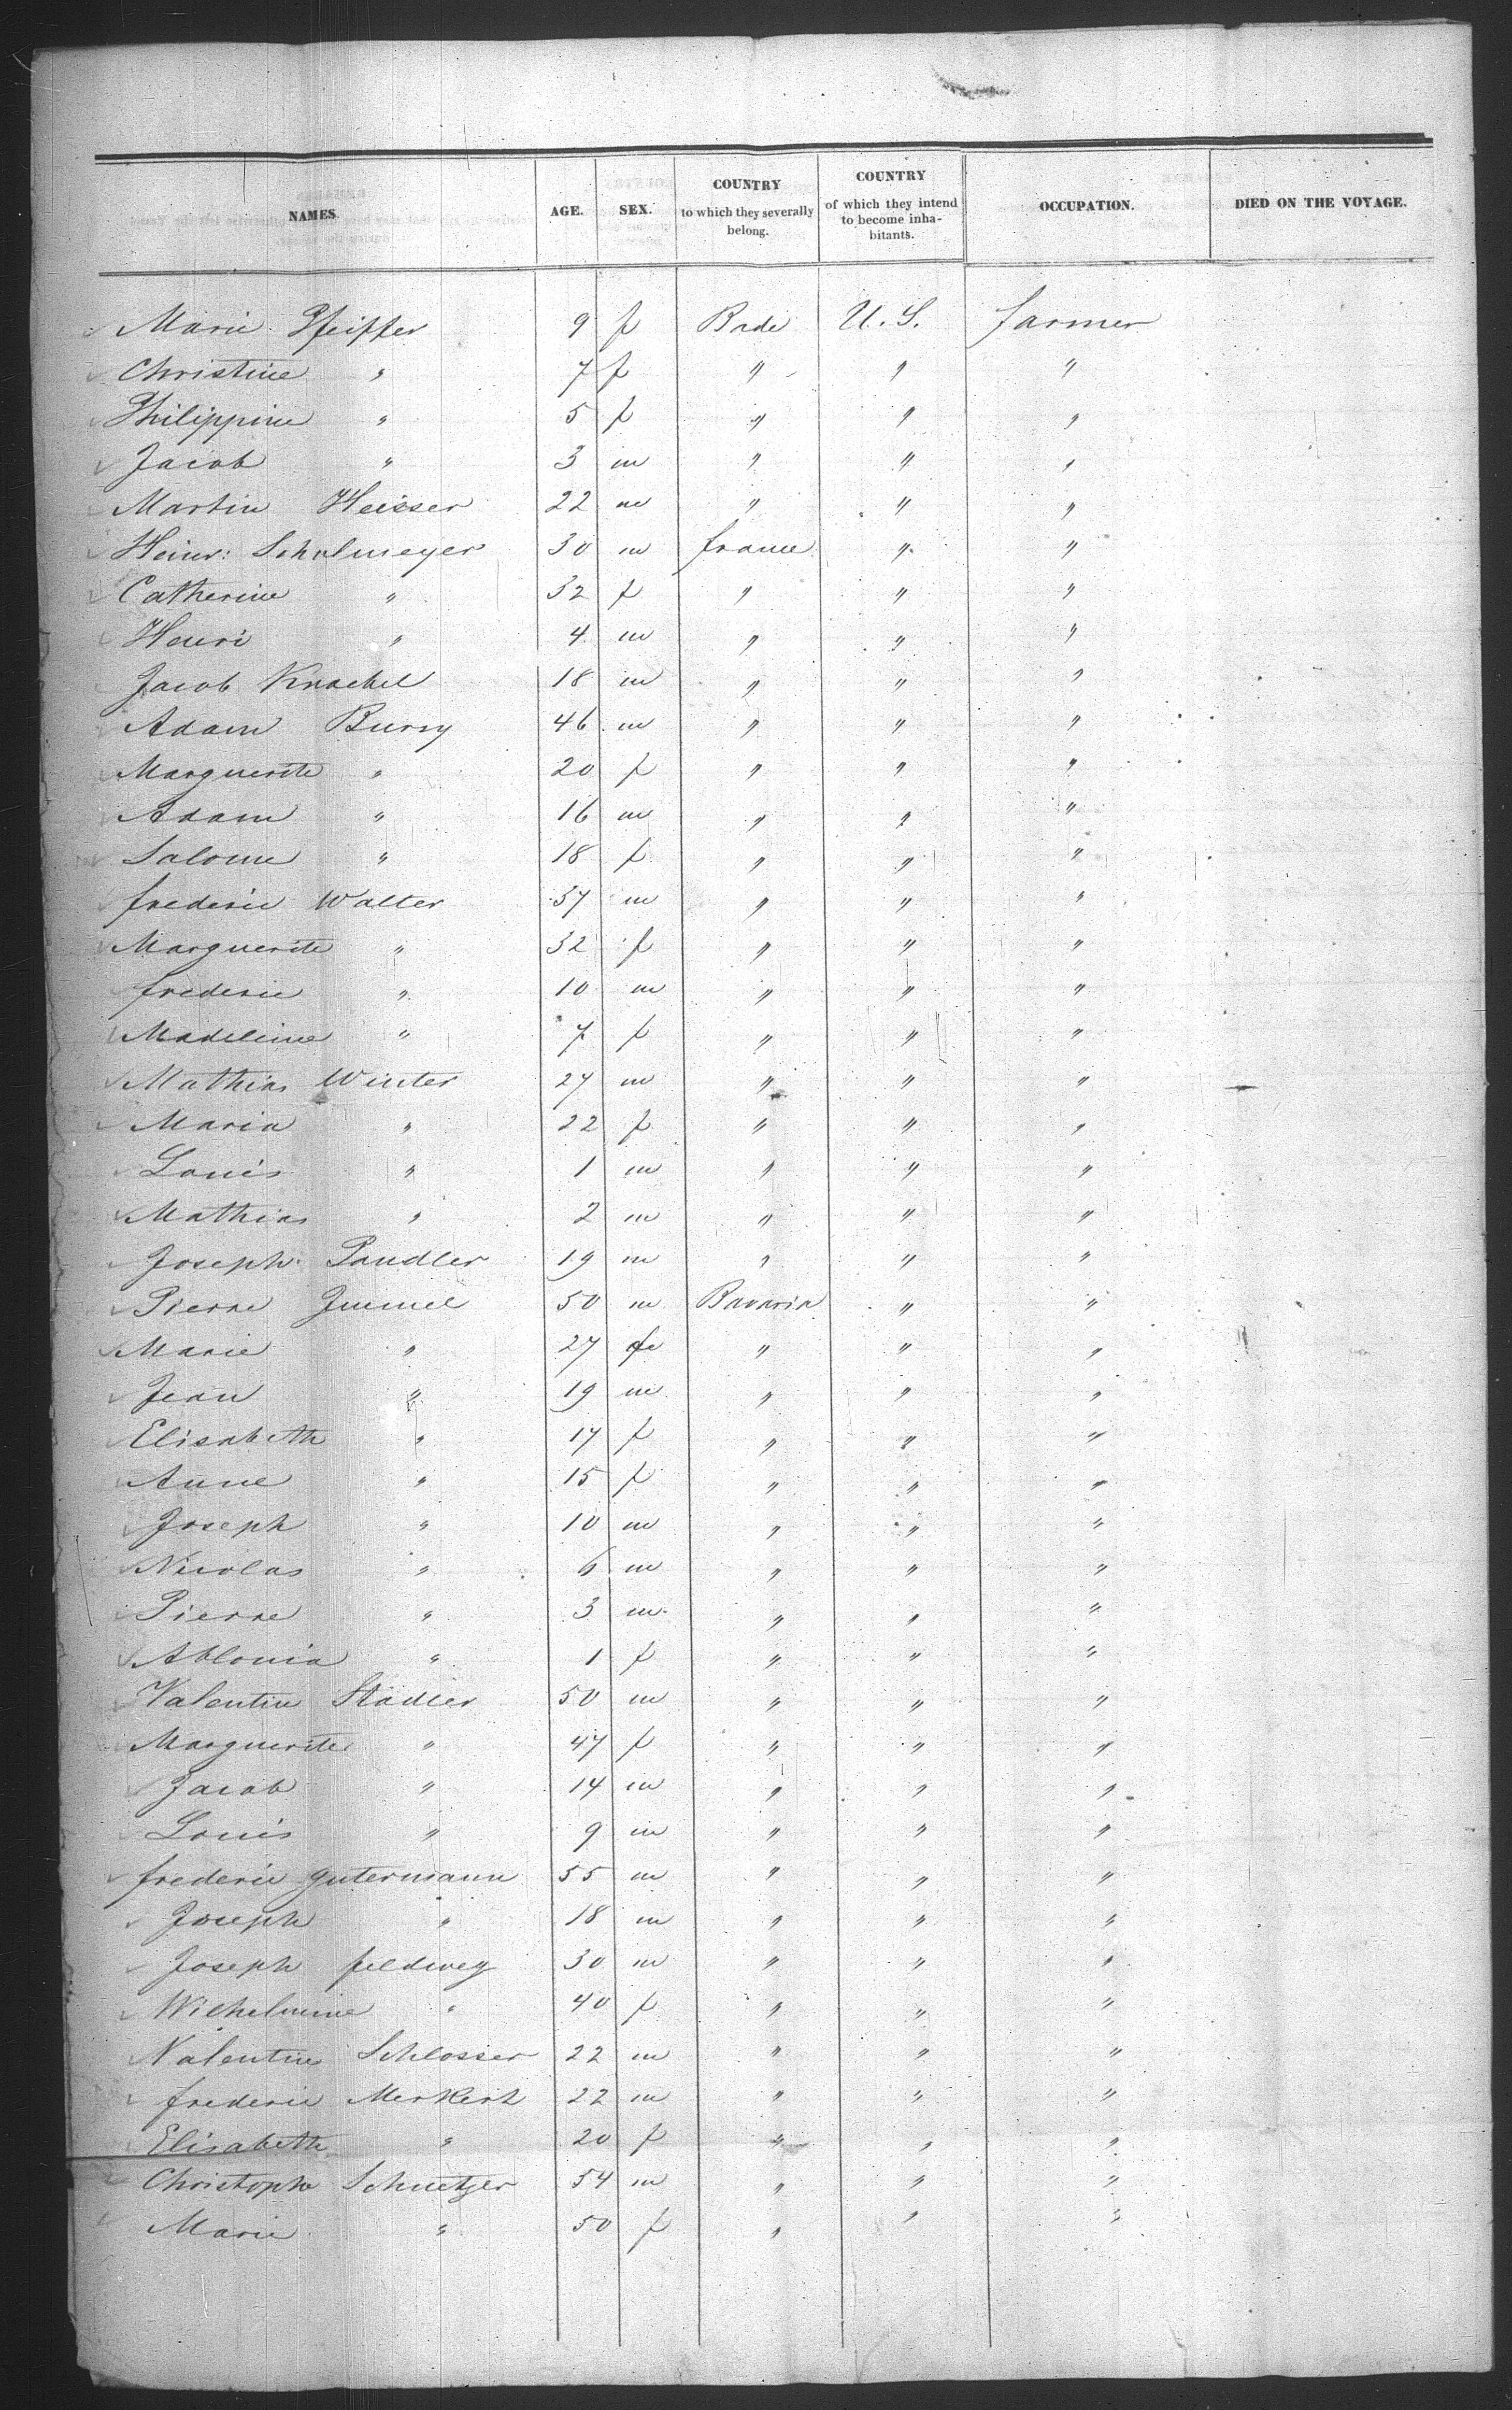 NAMES. AGE. SEX. COUNTRY to which they severally belong. COUNTRY of which they intend to become inhabitants. OCCUPATION. DIED ON THE VOYAGE.
Marie Pfeiffer 9 f Bade U.S. farmer
Christine " 7 f " " "
Philippine " 5 f " " "
Jacob " 3 m " " "
Martin Heisser 22 m " " "
Heinr: Schulmeyer 30 m france " "
Catherine " 32 f " " "
Henri " 4 m " " "
Jacob Knachel 18 m " " "
Adam Burry 46 m " " "
Marguerite " 20 f " " "
Adam " 16 m " " "
Salome " 18 f " " "
frederic Walter 37 m " " "
Marguerite " 32 f " " "
frederic " 10 m " " "
Madeleine " 7 f " " "
Mathias Winter 27 m " " "
Maria " 22 f " " "
Louis " 1 m " " "
Mathias " 2 m " " "
Joseph Pandler 19 m " " "
Pierre Jummel 50 m Bavaria " "
Marie " 27 f " " "
Jean " 19 m " " "
Elisabeth " 17 f " " "
Anne " 15 f " " "
Joseph " 10 m " " "
Nicolas " 6 m " " "
Pierre " 3 m " " "
Ablonia " 1 f " " "
Valentin Stadler 50 m " " "
Marguerite " 47 f " " "
Jacob " 14 m " " "
Louis " 9 m " " "
frederic gutermann 55 m " " "
Joseph " 18 m " " "
Joseph feldweg 30 m " " "
Wilhelmine " 40 f " " "
Valentin Schlosser 22 m " " "
frederic Merkert 22 m " " "
Elisabeth " 20 f " " "
Christoph Schnetzer 54 m " " "
Marie " 50 f " " "